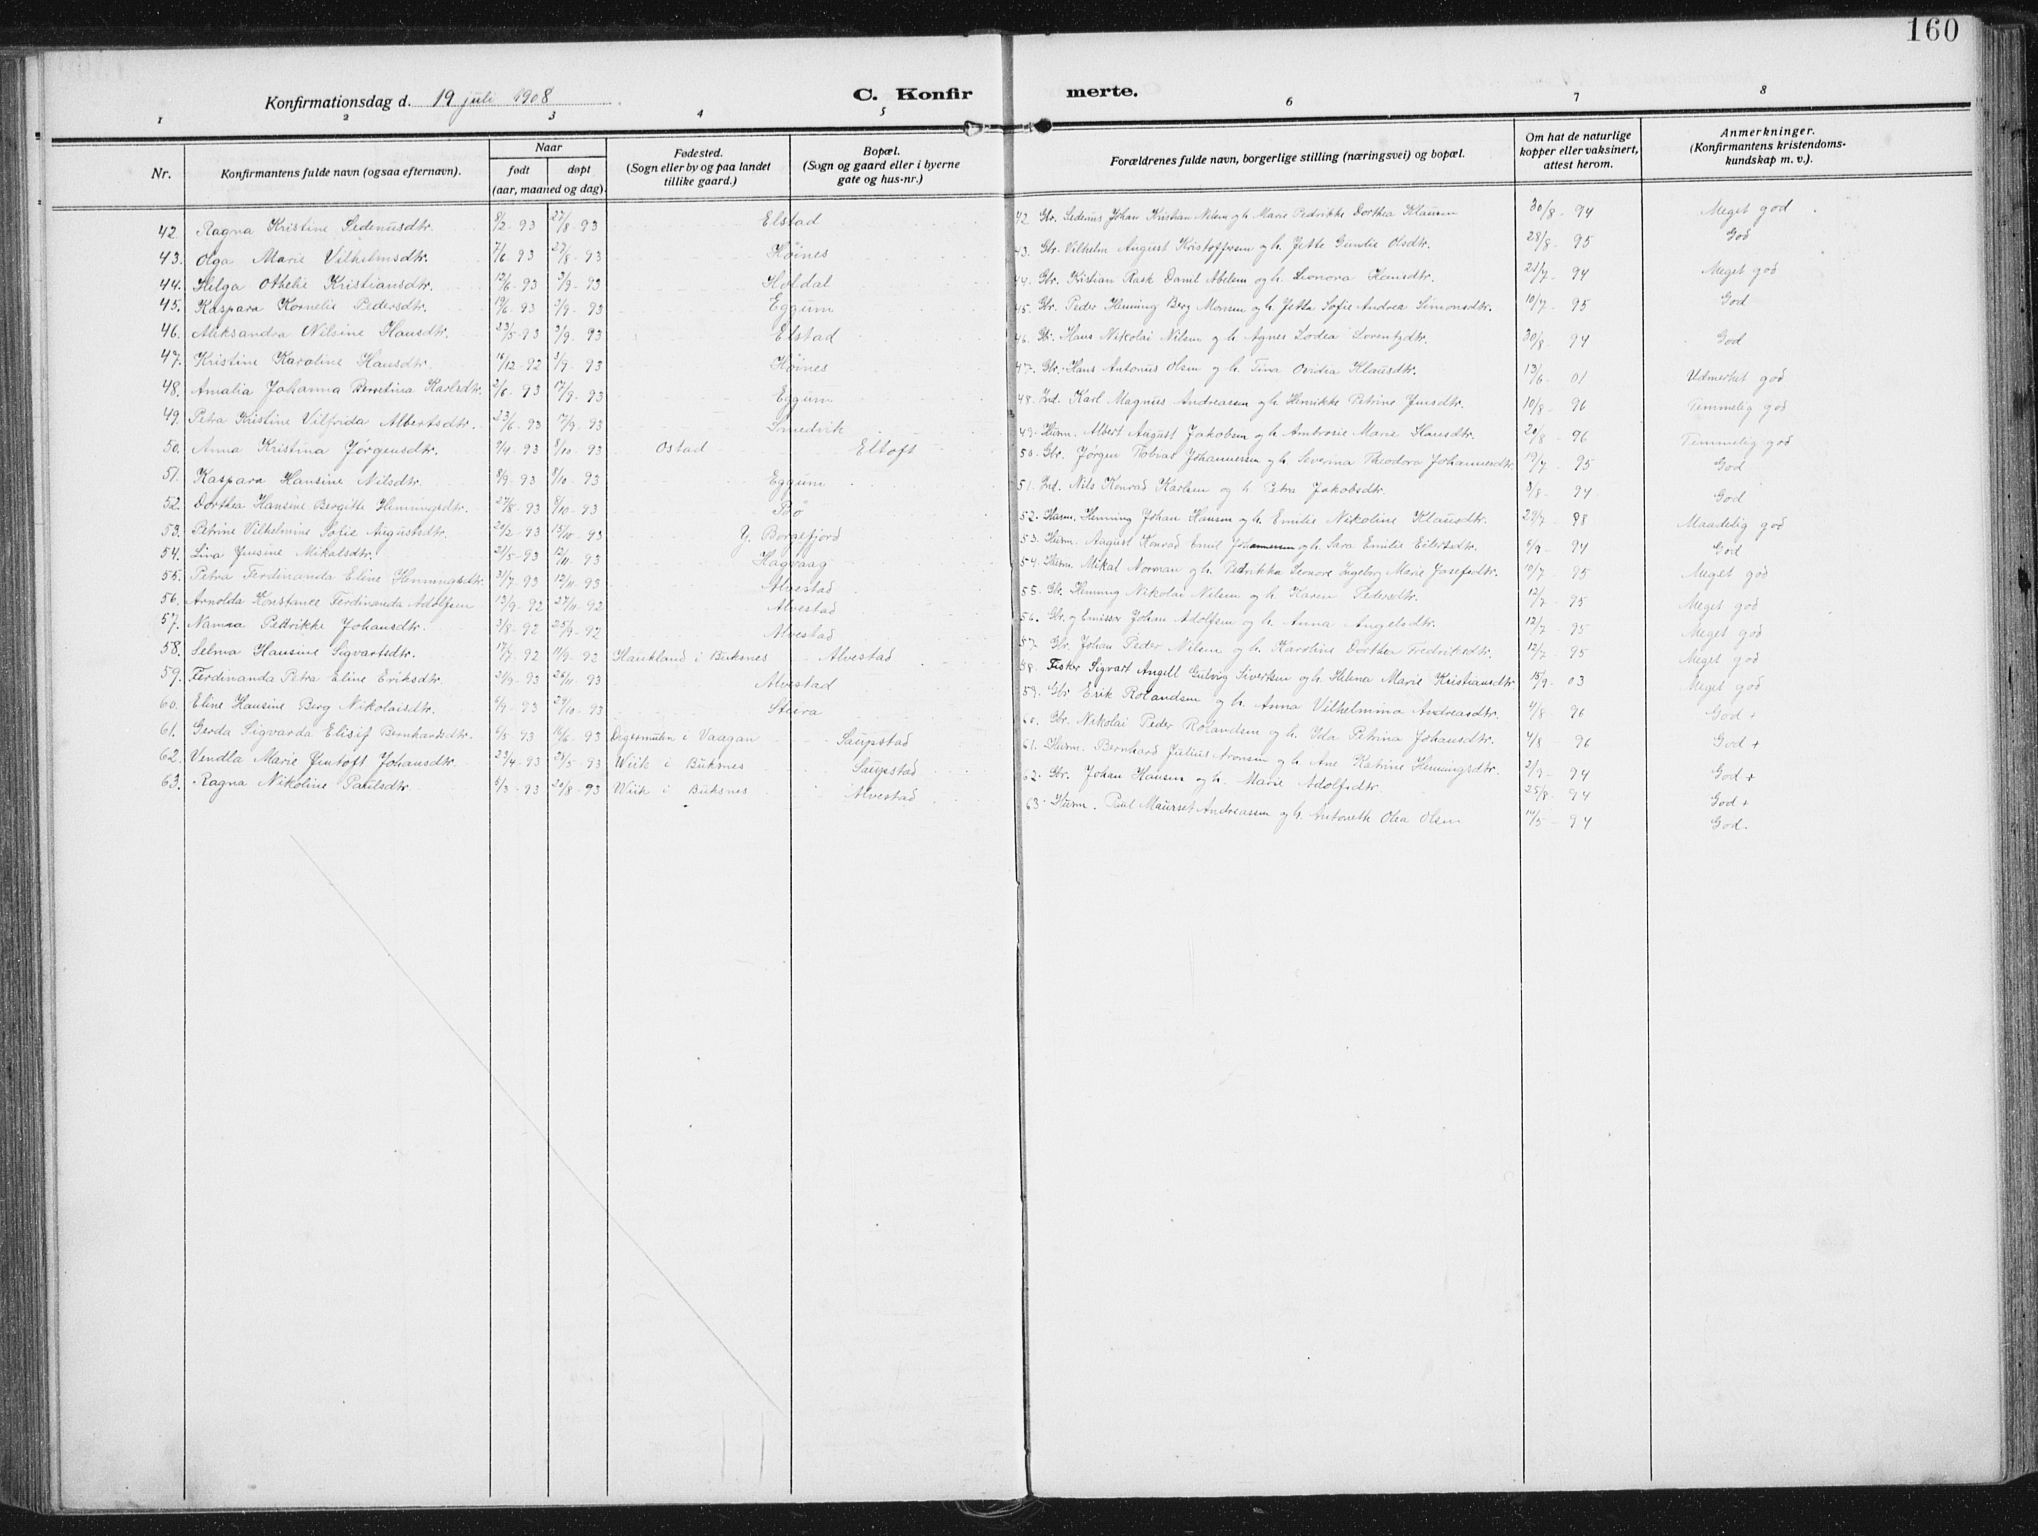 160
Konfirmationsdag d. 19 juli 1908
C. Konfirmerte.
1 2 3 4 5 6 7 8
Nr. Konfirmantens fulde navn (ogsaa efternavn). Naar født døpt (aar, maaned og dag). Fødested. (Sogn eller by og paa landet tillike gaard.) Bopæl. (Sogn og gaard eller i byerne gate og hus-nr.) Forældrenes fulde navn, borgerlige stilling (næringsvei) og bopæl. Om hat de naturlige kopper eller vaksinert, attest herom. Anmerkninger. (Konfirmantens kristendomskundskap m. v.).
42. Ragna Kristine Sedenusdtr. 8/2-93 27/8-93 Elstad
43. Olga Marie Vilhelmsdtr. 7/6 93 27/8-93 Høines
44. Helga Othelie Kristiansdtr. 12/6-93 3/9-93 Holdal
45. Kaspara Kornelie Pedersdtr. 19/6 93 3/9-93 Eggum
46. Aleksandra Nilsine Hansdtr. 23/5-93 3/9-93 Elstad
47. Kristine Karoline Hansdtr. 16/12-92 3/9-93 Høines
48. Amalia Johanna Berretina Karlsdtr. 2/6-93 17/9-93 Eggum
49. Petra Kristine Vilfrida Albertsdtr. 23/6-93 17/9-93 Smedvik
50. Anna Kristina Jørgensdtr. 9/4-93 8/10-93 Ostad Eltoft
51. Kaspara Hansine Nilsdtr. 8/9-93 8/10-93 Eggum
52. Dorthea Hansine Bergitte Hemingsdtr. 27/8-93 8/10-93 Bø
53. Petrine Vilhelmine Sofie Augustsdtr. 20/2-93 15/10-93 Y. Borgefjord
54. Lina Jensine Mikalsdtr. 21/8-93 12/11-93 Hagvaag
55. Petra Ferdinanda Eline Hemingsdtr. 31/7 93 12/11 93 Alvestad
56. Arnolda Konstance Ferdinanda Adolfsen 13/9-92 27/11-92 Alvestad
57. Nanna Pedrikke Johansdtr. 3/8-92 25/9-92 Alvestad
58. Selma Hansine Sigvartsdtr. 17/7 92 11/9-92 Haukland i Buksnes Alvestad
59. Ferdinanda Petra Eline Eriksdtr. 21/9-93 26/11-93 Alvestad
60. Eline Hansine Berg Nikolaisdtr. 6/9-93 29/10-93 Steira
61. Gerda Sigvarda Elisif Bernhardsdtr. 6/5-93 16/6-93 Digermulen i Vaagan Saupstad
62. Vendla Marie Jentoft Johansdtr. 23/4-93 28/5-93 Wiik i Buksnes Saupstad
63. Ragna Nikoline Paulsdtr. 5/3-93 20/8-93 Wiik i Buksnes Alvestad
42. Gbr. Sedenus Johan Kristian Nilsen og h. Marie Pedrikke Dorthea Klausen 30/8-94 Meget god
43. Gbr. Vilhelm August Kristoffersen og h. Jette Gurine Olsdtr. 28/8-95 God
44. Gbr. Kristian Rask Danil Abelsen og h. Leonora Hansdtr. 21/7-94 Meget god
45. Gbr. Peder Heming Berg Monsen og h. Jetta Sofie Andrea Simonsdtr. 10/7-95 God
46. Gbr. Hans Nikolai Nilsen og h. Agnes Lodea Lorentzdtr. 30/8 94 God
47. Gbr. Hans Antonus Olsen og h. Tina Ovidia Klausdtr. 13/6-01 Udmerket god
48. Ind. Karl Magnus Andreassen og h. Henrikke Petrine Jensdtr. 10/8-96 Temmelig god
49. Husm. Albert August Jakobsen og h. Ambrosie Marie Hansdtr. 20/8-96 Temmelig god
50. Gbr. Jørgen Tobias Johannessen og h. Severina Theodora Johannesdtr. 19/7-95 God
51. Ind. Nils Konrad Karlsen og h. Petra Jakobsdtr. 8/8-94 God
52. Husm. Heming Johan Hansen og h. Emilie Nikoline Klausdtr. 29/7 98 Maadelig god
53. Husm. August Konrad Emil Johannessen og h. Sara Emilie Eilertsdtr. 6/9-94 God
54. Husm. Mikal Norman og h. Pedrikka Leonore Ingeborg Marie Josefsdtr. 10/7-95 Meget god
55. Gbr. Heming Nikolai Nilsen og h. Karen Pedersdtr. 12/7-95 Meget god
56. Gbr. og Emissær Johan Adolfsen og h. Anna Angelsdtr. 12/7-95 Meget god
57. Gbr. Johan Peder Nilsen og h. Karoline Dorthea Fredriksdtr. 12/7-95 Meget god
58. Fisker Sigvart Angell Gulvig Sivertsen og h. Helena Marie Kristiansdtr. 15/9-03 Meget god
59. Gbr Erik Rolandsen og h. Anna Vilhelmina Andreasdtr. 4/8 96 God +
60. Gbr. Nikolai Peder Rolandsen og h. Ida Petrina Johansdtr. 4/8 96 God +
61. Husm. Bernhard Julius Aronsen og h. Ane Katrine Hemingsdtr. 2/9-94 God +
62. Gbr. Johan Hansen og h. Marie Adolfsdtr. 25/8-94 God +
63. Husm. Paul Maurset Andreassen og h. Antoneth Olea Olsen 14/5-94 God.